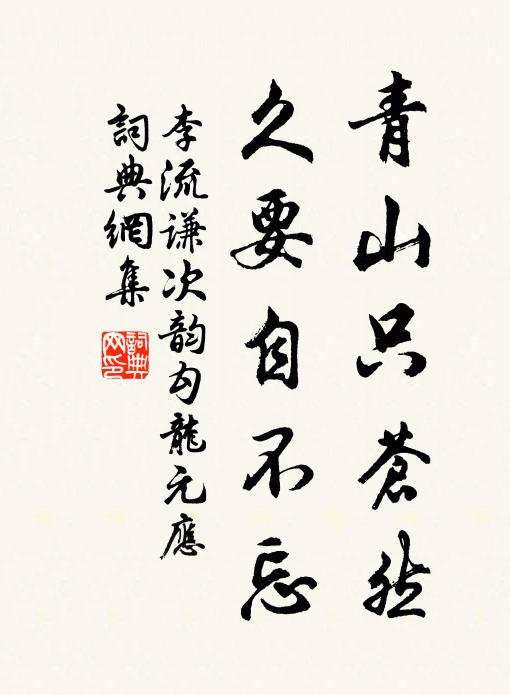 青山只蒼然
久要自不忘
李流谦次韵勾龍元應
詞典網集
詞典網印